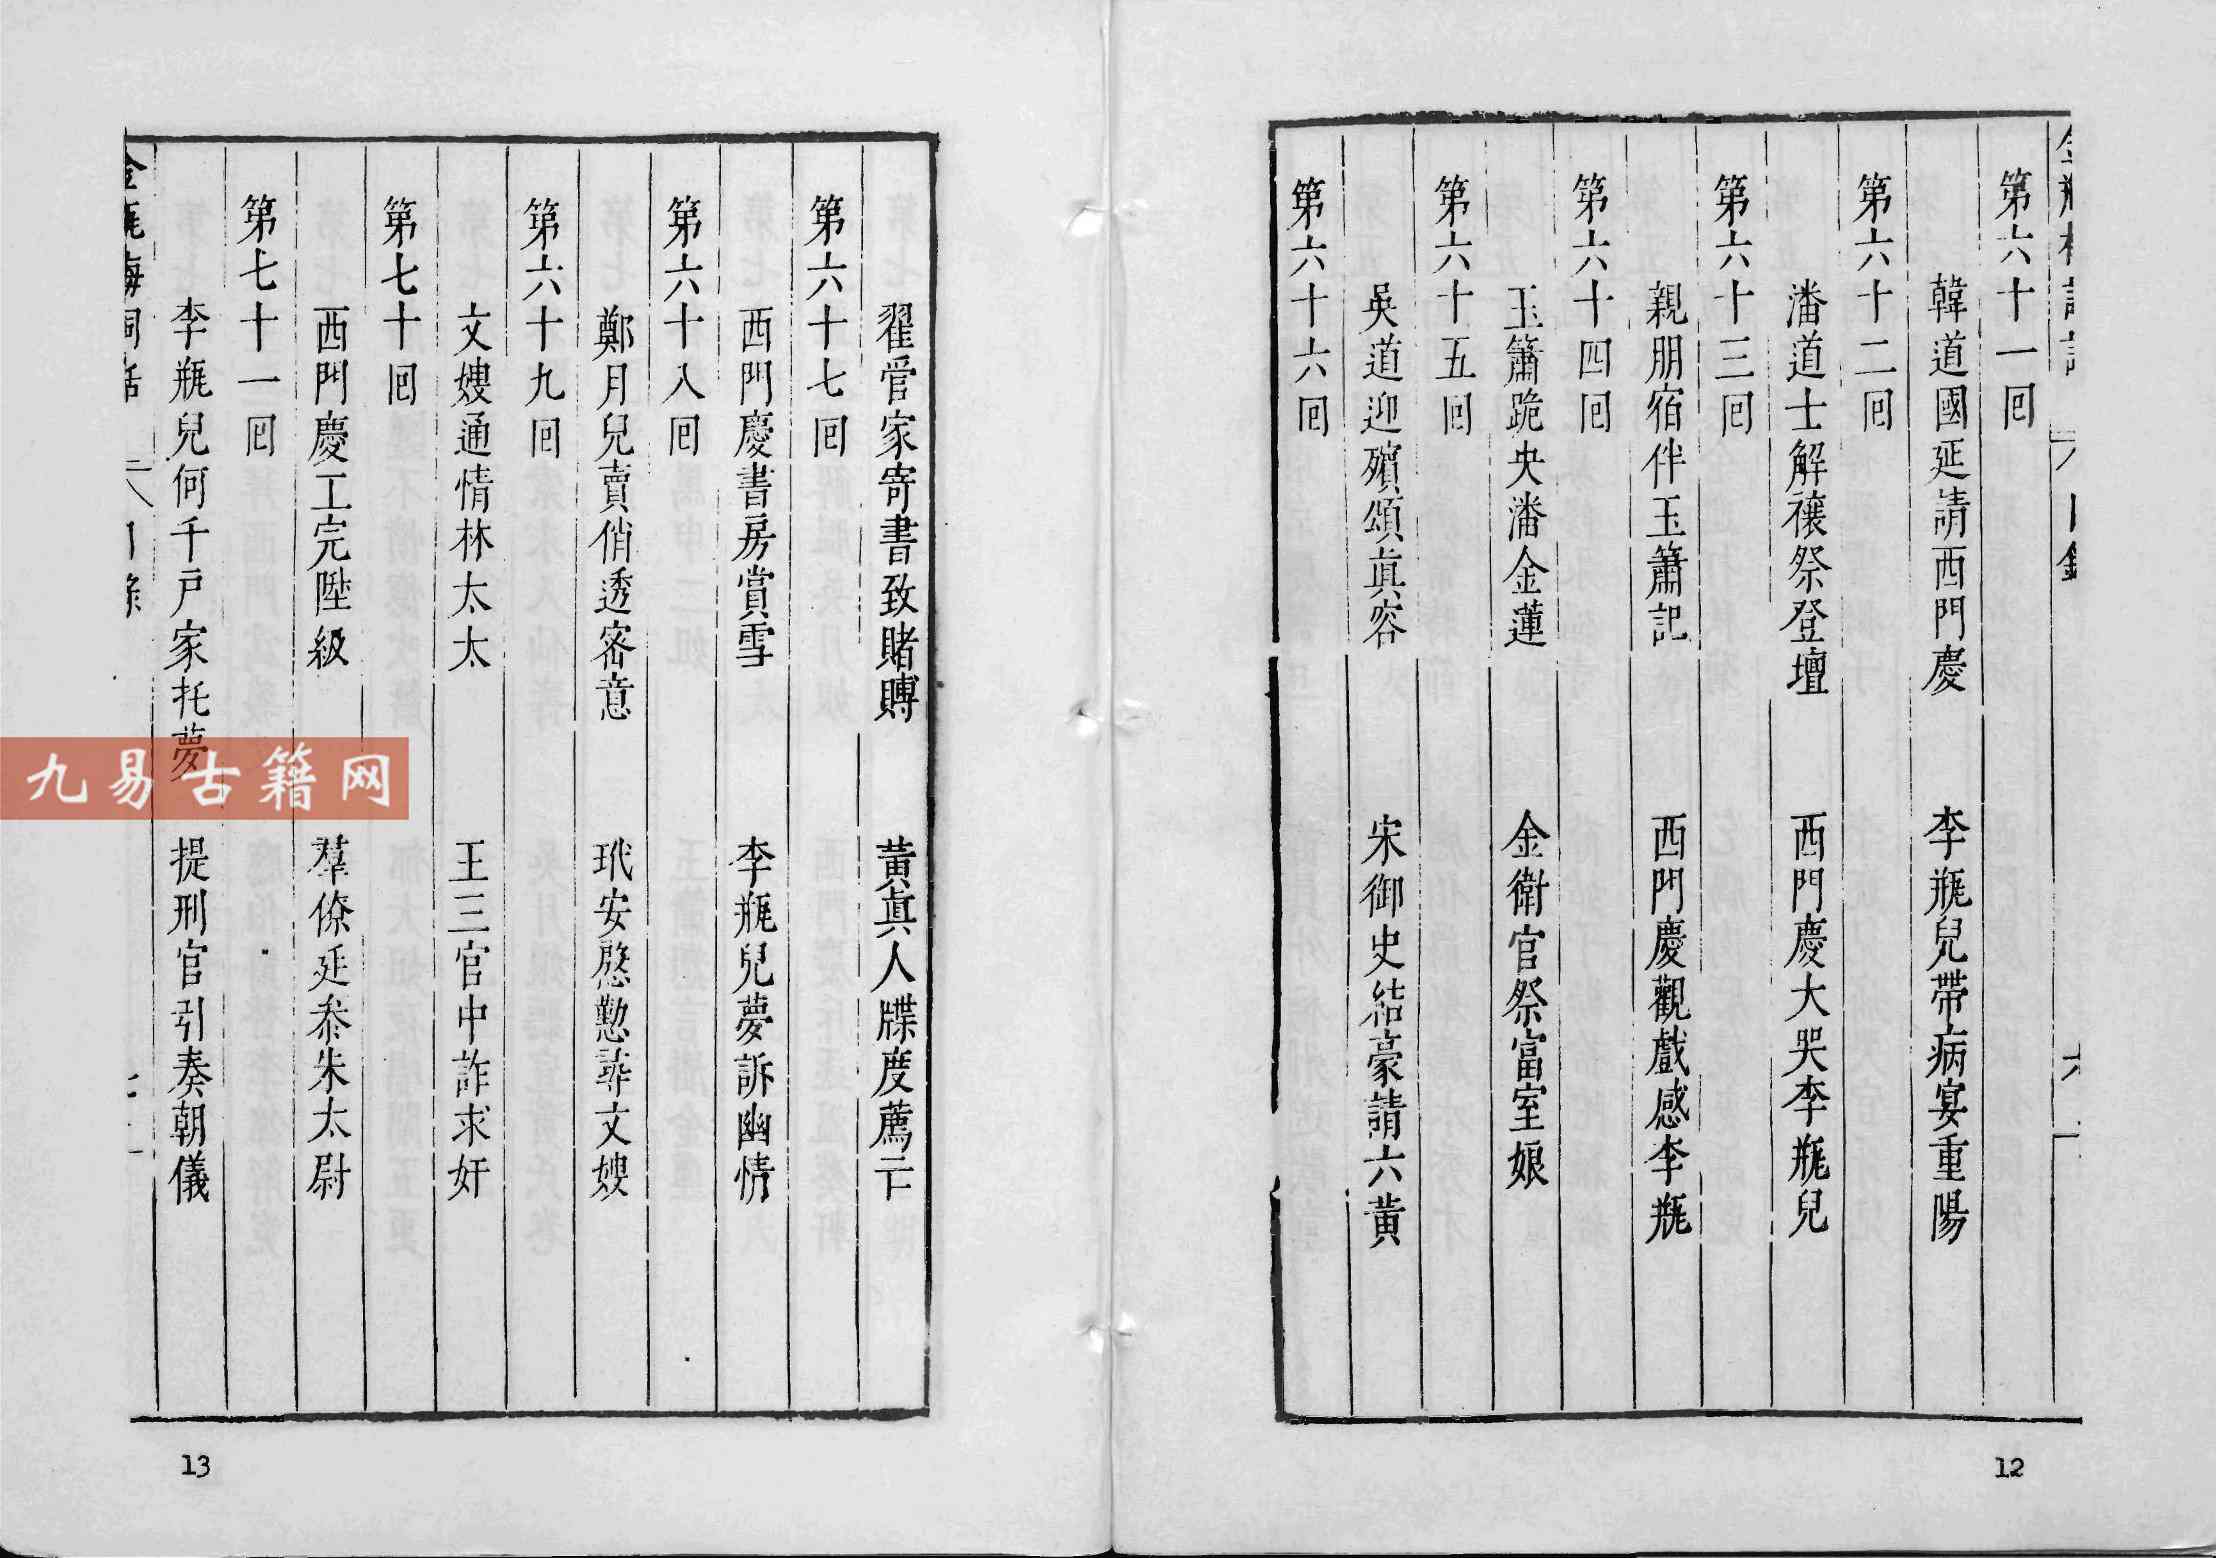 第六十一回
韓道國延請西門慶　李瓶兒帶病宴重陽
第六十二回
潘道士解禳祭登壇　西門慶大哭李瓶兒
第六十三回
親朋宿伴玉簫記　西門慶觀戲感李瓶
第六十四回
玉簫跪央潘金蓮　金衛官祭富室娘
第六十五回
吳道迎殯頌眞容　宋御史結豪請六黃
第六十六回
12
翟管家寄書致賻　黃眞人牒度薦亡
第六十七回
西門慶書房賞雪　李瓶兒夢訴幽情
第六十八回
鄭月兒賣俏透密意　玳安慇懃尋文嫂
第六十九回
文嫂通情林太太　王三官中詐求奸
第七十回
西門慶工完陞級　羣僚廷叅朱太尉
第七十一回
李瓶兒何千戶家托夢　提刑官引奏朝儀
金瓶梅詞話
13
九易古籍网